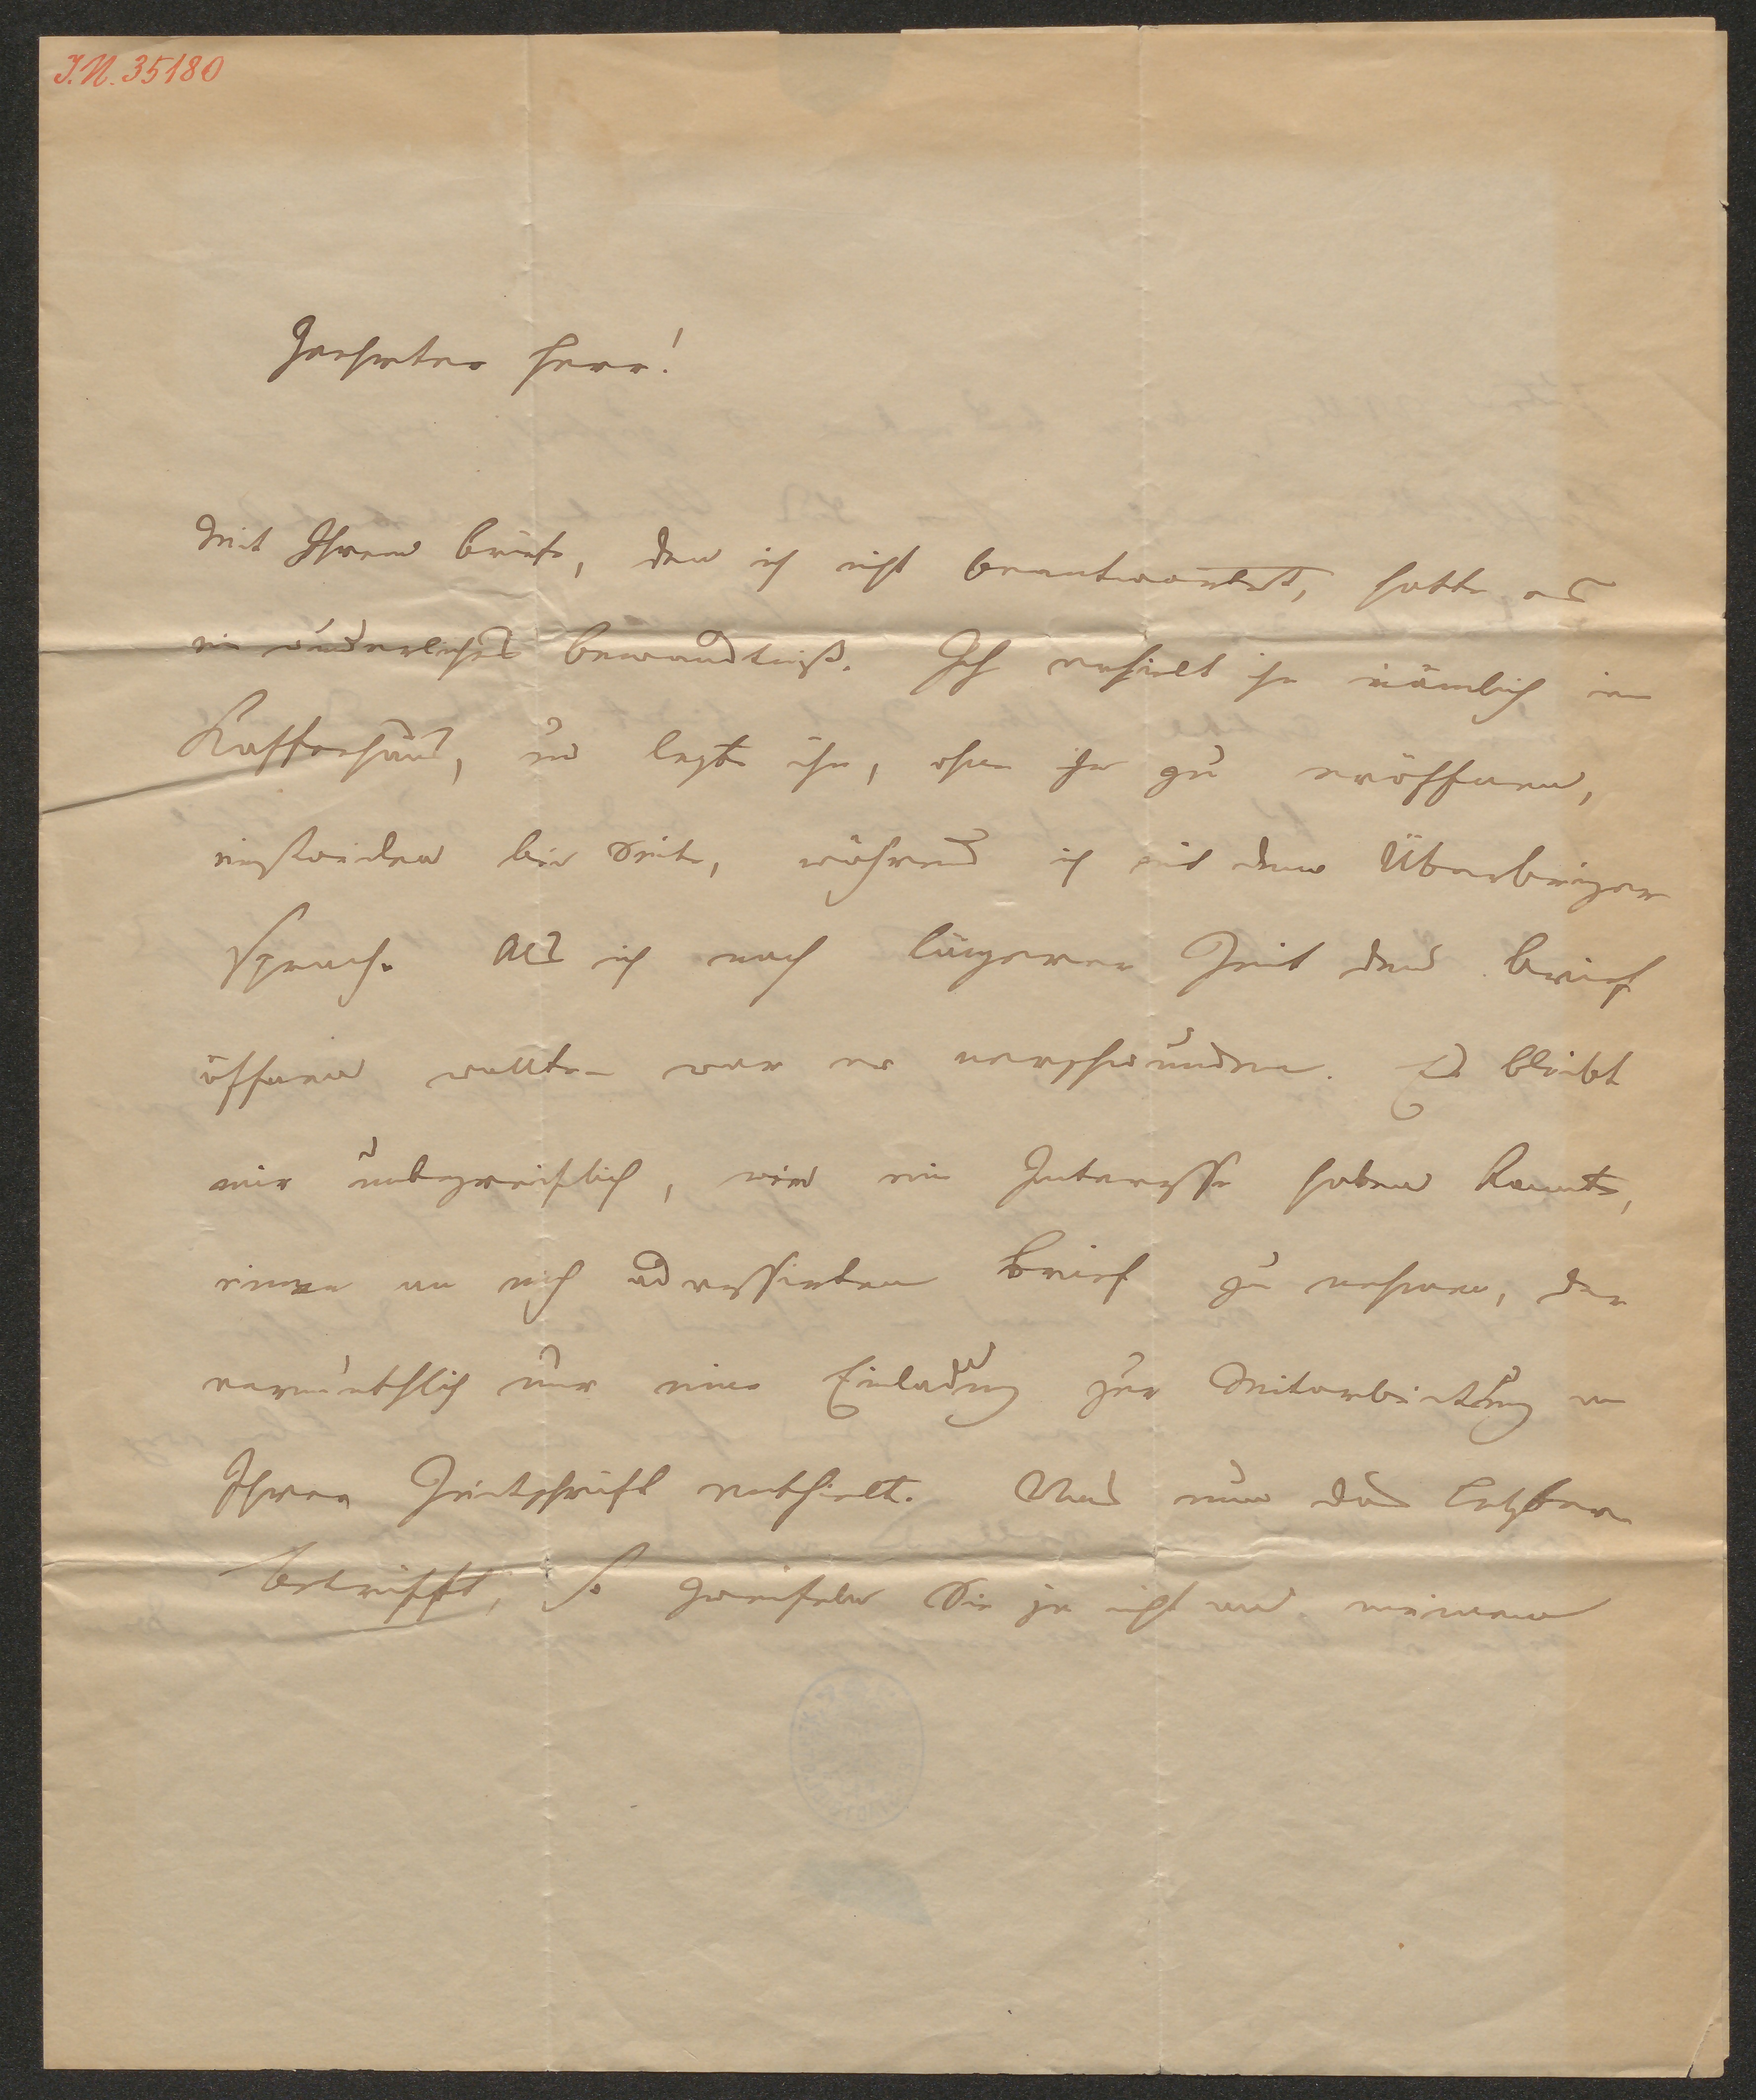 I.N. 35180
Geehrter Herr!
Mit Ihrem Briefe, den ich nicht beantwortet, hatte es
ein wunderliches Bewandtniß. Ich erhielt ihn nämlich im
Kaffeehaus, und legte ihn, ohne ihn zu eröffnen,
einstweilen bei Seite, während ich mit dem Überbringer
sprach. Als ich nach längerer Zeit den Brief
öffnen wollte – war er verschwunden. Es bleibt
mir unbegreiflich, wer ein Interesse haben konnte,
einen an mich adressirten Brief zu nehmen, der
vermuthlich nur eine Einladung zur Mitarbeitung an
Ihrer Zeitschrift enthielt. Was nun das Letztere
betrifft, so zweifeln Sie ja nicht an meinem